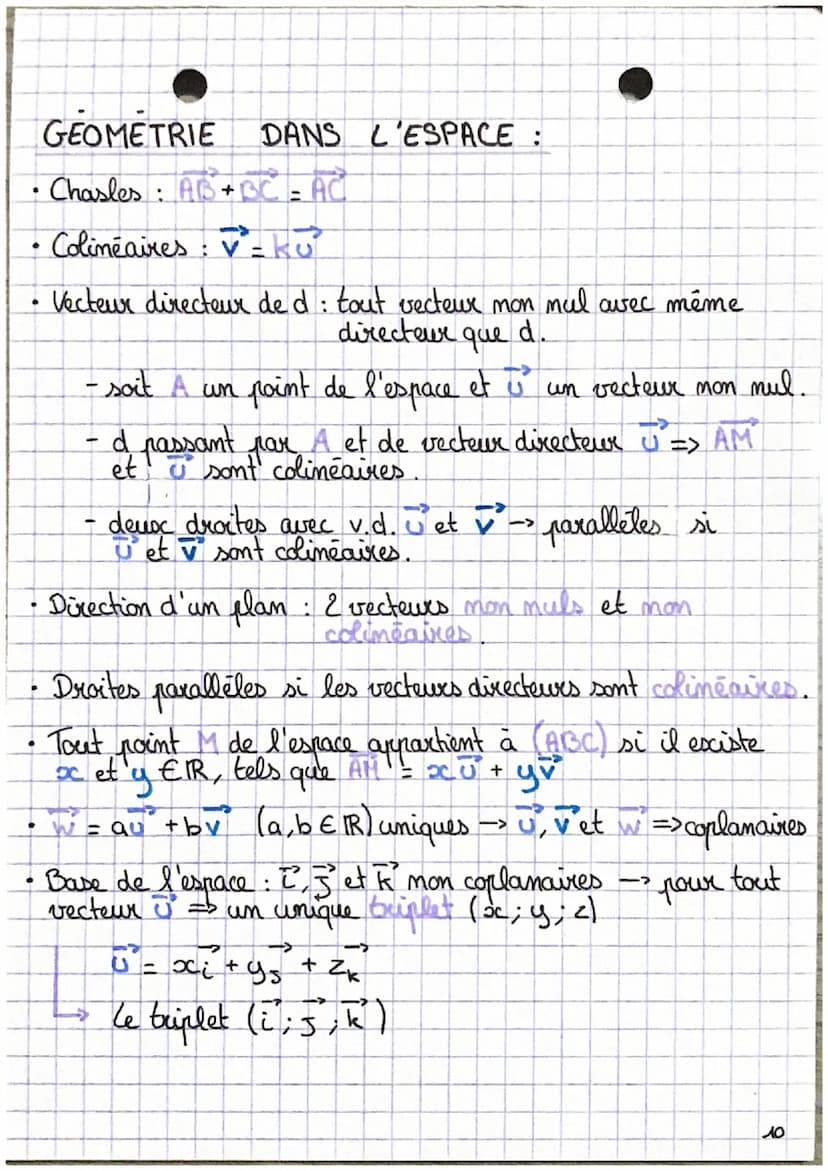 GÉOMÉTRIE DANS L'ESPACE :
• Chasles : \overrightarrow{AB} + \overrightarrow{BC} = \overrightarrow{AC}
• Colinéaires : \vec{v} = k\vec{u}
• Vecteur directeur de d : tout vecteur non nul avec même
directeur que d.
- soit A un point de l'espace et \vec{u} un vecteur non nul.
- d passant par A et de vecteur directeur \vec{u} => \overrightarrow{AM}
et \vec{u} sont colinéaires.
- deux droites avec v.d. \vec{u} et \vec{v} → parallèles si
\vec{u} et \vec{v} sont colinéaires.
• Direction d'un plan : 2 vecteurs non nuls et non
colinéaires.
• Droites parallèles si les vecteurs directeurs sont colinéaires.
• Tout point M de l'espace appartient à (ABC) si il existe
x et y ∈ ℝ, tels que \overrightarrow{AM} = x\vec{u} + y\vec{v}
• \vec{w} = a\vec{u} + b\vec{v} (a, b ∈ ℝ) uniques → \vec{u}, \vec{v} et \vec{w} => coplanaires
• Base de l'espace : \vec{i}, \vec{j} et \vec{k} non coplanaires → pour tout
vecteur \vec{u} => un unique triplet (x ; y ; z)
\vec{u} = x\vec{i} + y\vec{j} + z\vec{k}
↳ Le triplet (\vec{i} ; \vec{j} ; \vec{k})
10